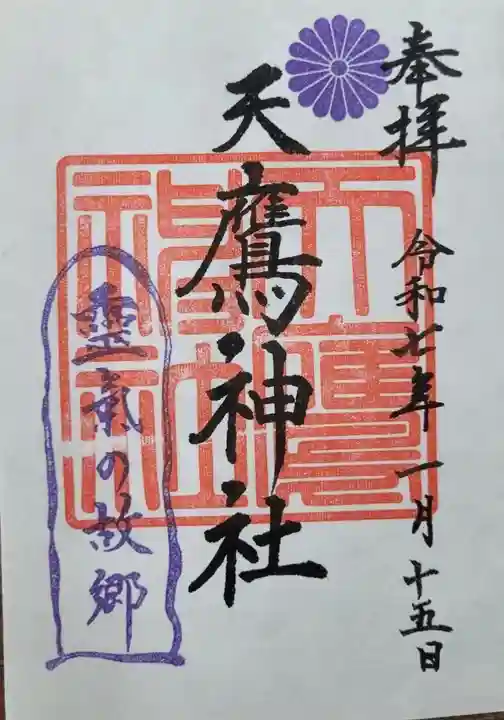 奉拝
令和七年 一月 十五日
天鷹神社
天鷹神社
靈氣の故郷